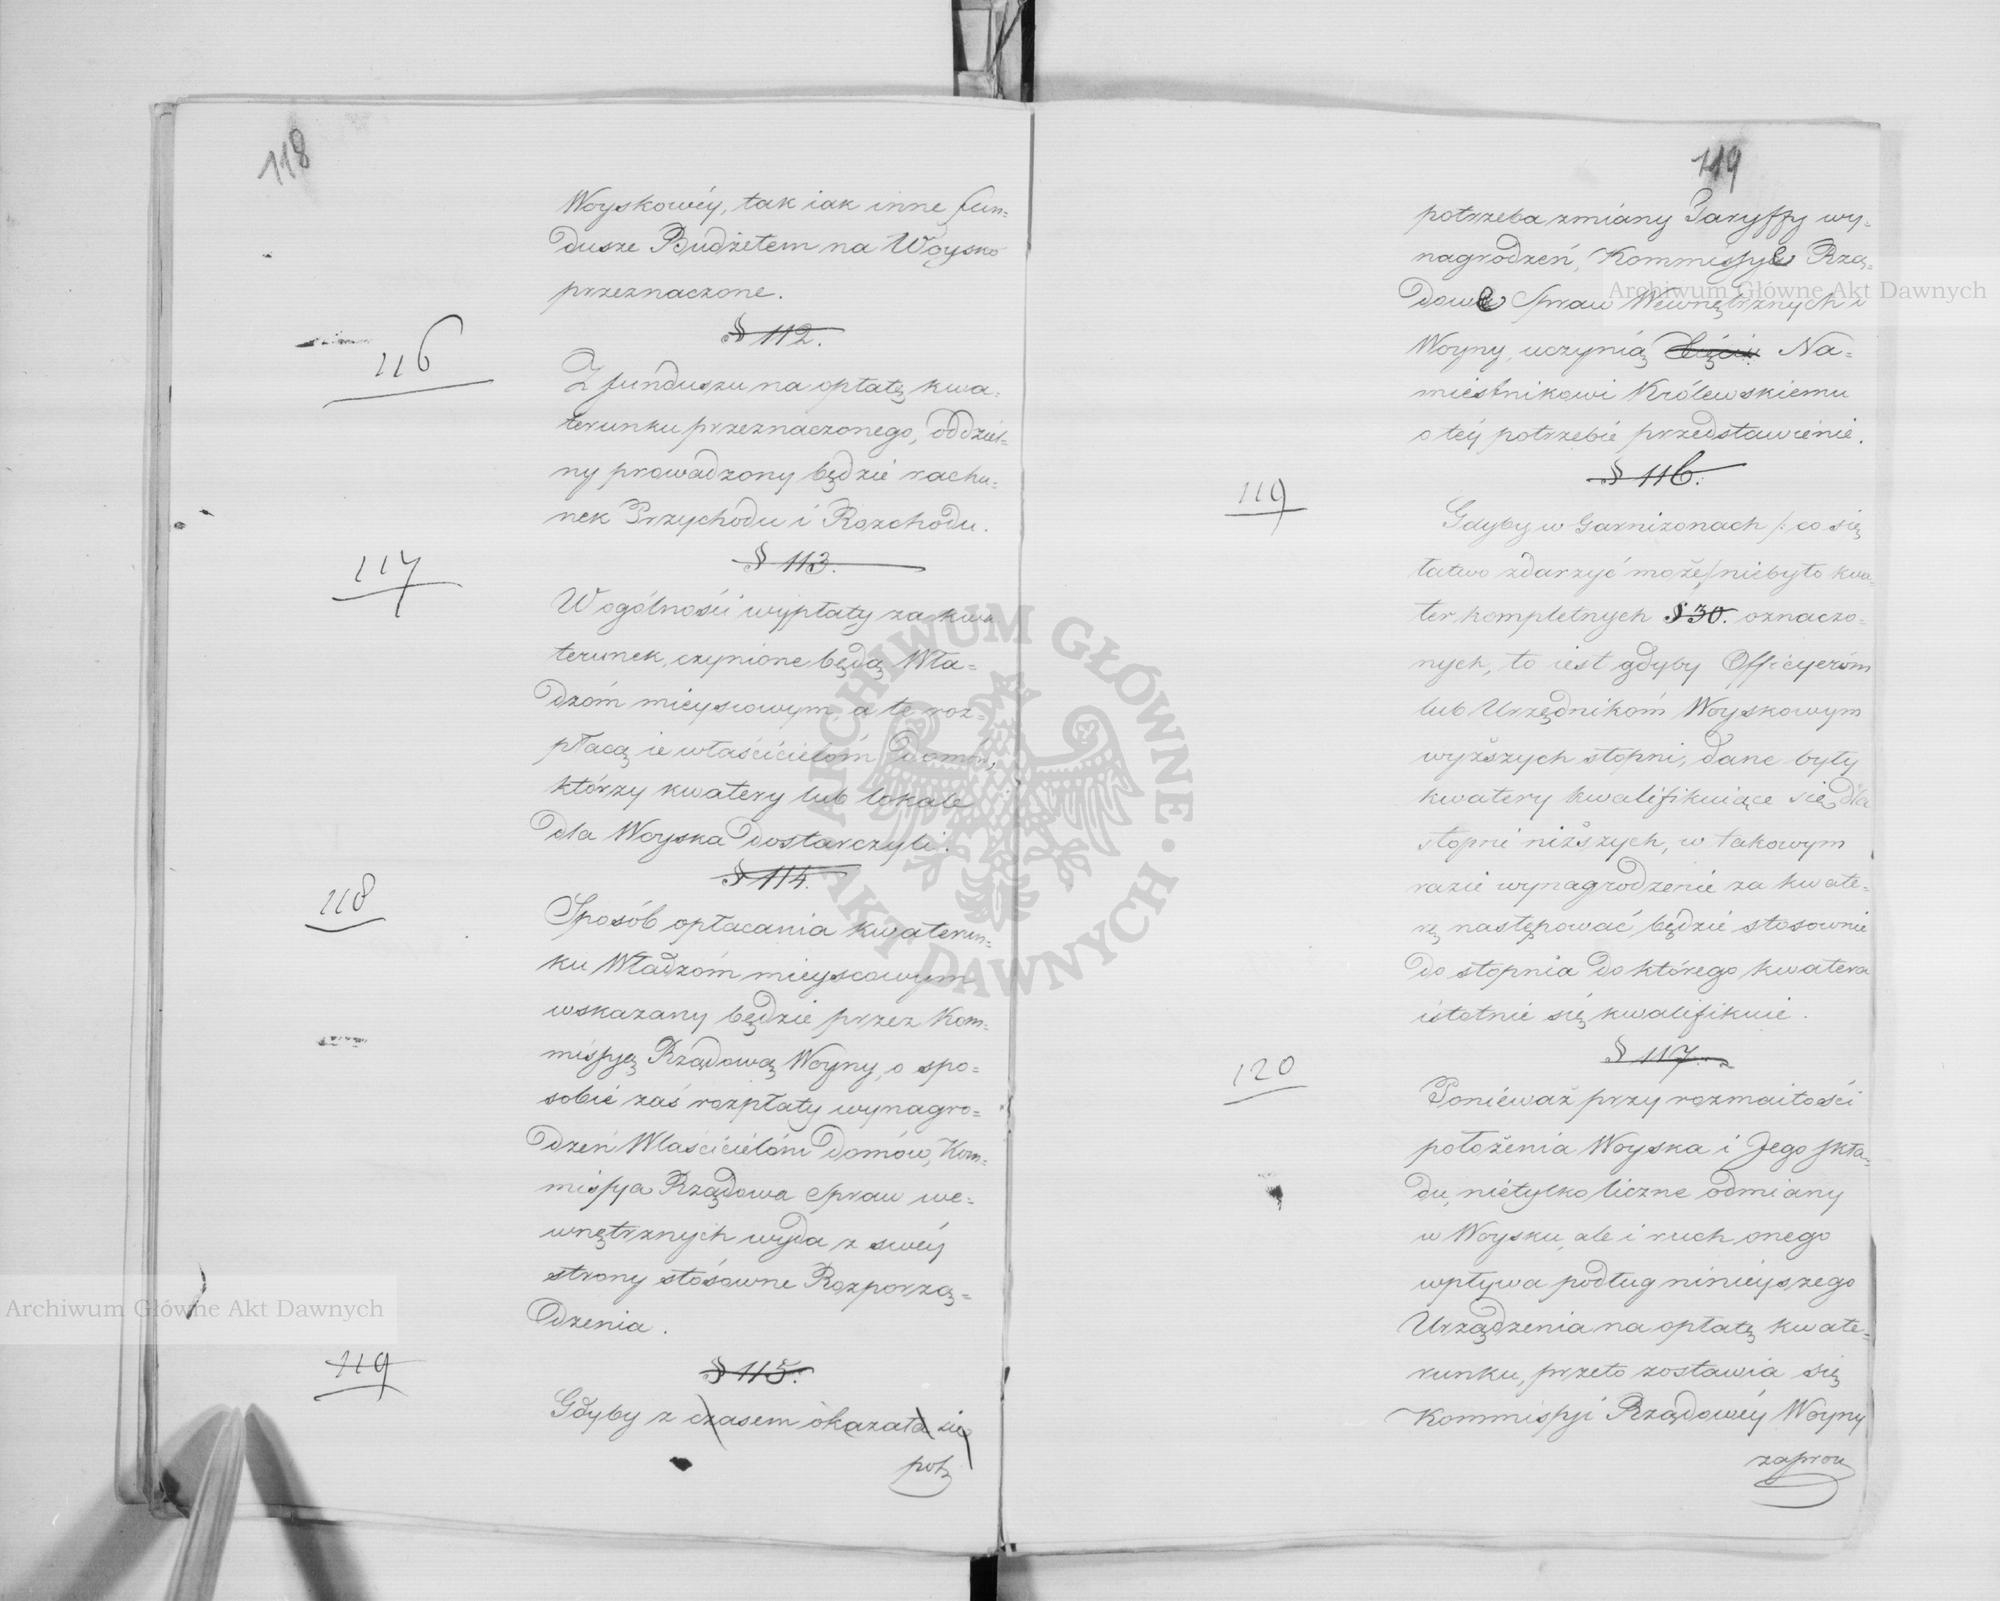 118
Woyskowéy, tak iak inne fun=
dusze Budżetem na Woysko
przeznaczone.
§ 112.
116
Z funduszu na opłatę kwa=
terunku przeznaczonego, oddziel=
ny prowadzony będzie rachu=
nek Przychodu i Rozchodu.
§ 113.
117
W ogólności wypłaty za kwa
terunek, czynione będą Wła=
dzóm mieyscowym, a te roz=
płacą ie właścicielóm Domów,
którzy kwatery lub lokale
dla Woyska dostarczyli.
§ 114.
118
Sposób opłacania kwaterun=
ku Władzóm mieyscowym
wskazany będzie przez Kom=
missyą Rządową Woyny, o spo=
sobie zaś rozpłaty wynagro=
dzeń Właścicielóm Domów, Kom=
missya Rządowa Spraw we=
wnętrznych wyda z swéy
strony stósowne Rozporzą=
dzenia.
119
§ 115.
Gdyby z czasem okazała się
potz
119
potrzeba zmiany Taryffy wy=
nagrodzeń, Kommissye Rzą=
dowe Spraw Wewnętrznych i
Woyny, uczynią Na=
miestnikowi Królewskiemu
o téy potrzebie przedstawienie.
§ 116.
119
Gdyby w Garnizonach /: co się
łatwo zdarzyć może/ niebyło kwa=
ter kompletnych § 30. oznaczo=
nych, to iest gdyby Officyeróm
lub Urzędnikóm Woyskowym
wyższych stopni, dane były
kwatery kwalifikuiące się dla
stopni niższych, w takowym
razie wynagrodzenie za kwate=
rę następować będzie stosownie
do stopnia do którego kwatera
istotnie się kwalifikuie.
§ 117.
120
Ponieważ przy rozmaitości
położenia Woyska i Jego skła=
du, nietylko liczne odmiany
w Woysku, ale i ruch onego
wpływa podług ninieyszego
Urządzenia na opłatę kwate=
runku, przeto zostawia się
Kommissyi Rządowéy Woyny
zaprou
Archiwum Główne Akt Dawnych
Archiwum Główne Akt Dawnych
ARCHIWUM GŁÓWNE · AKT DAWNYCH ·